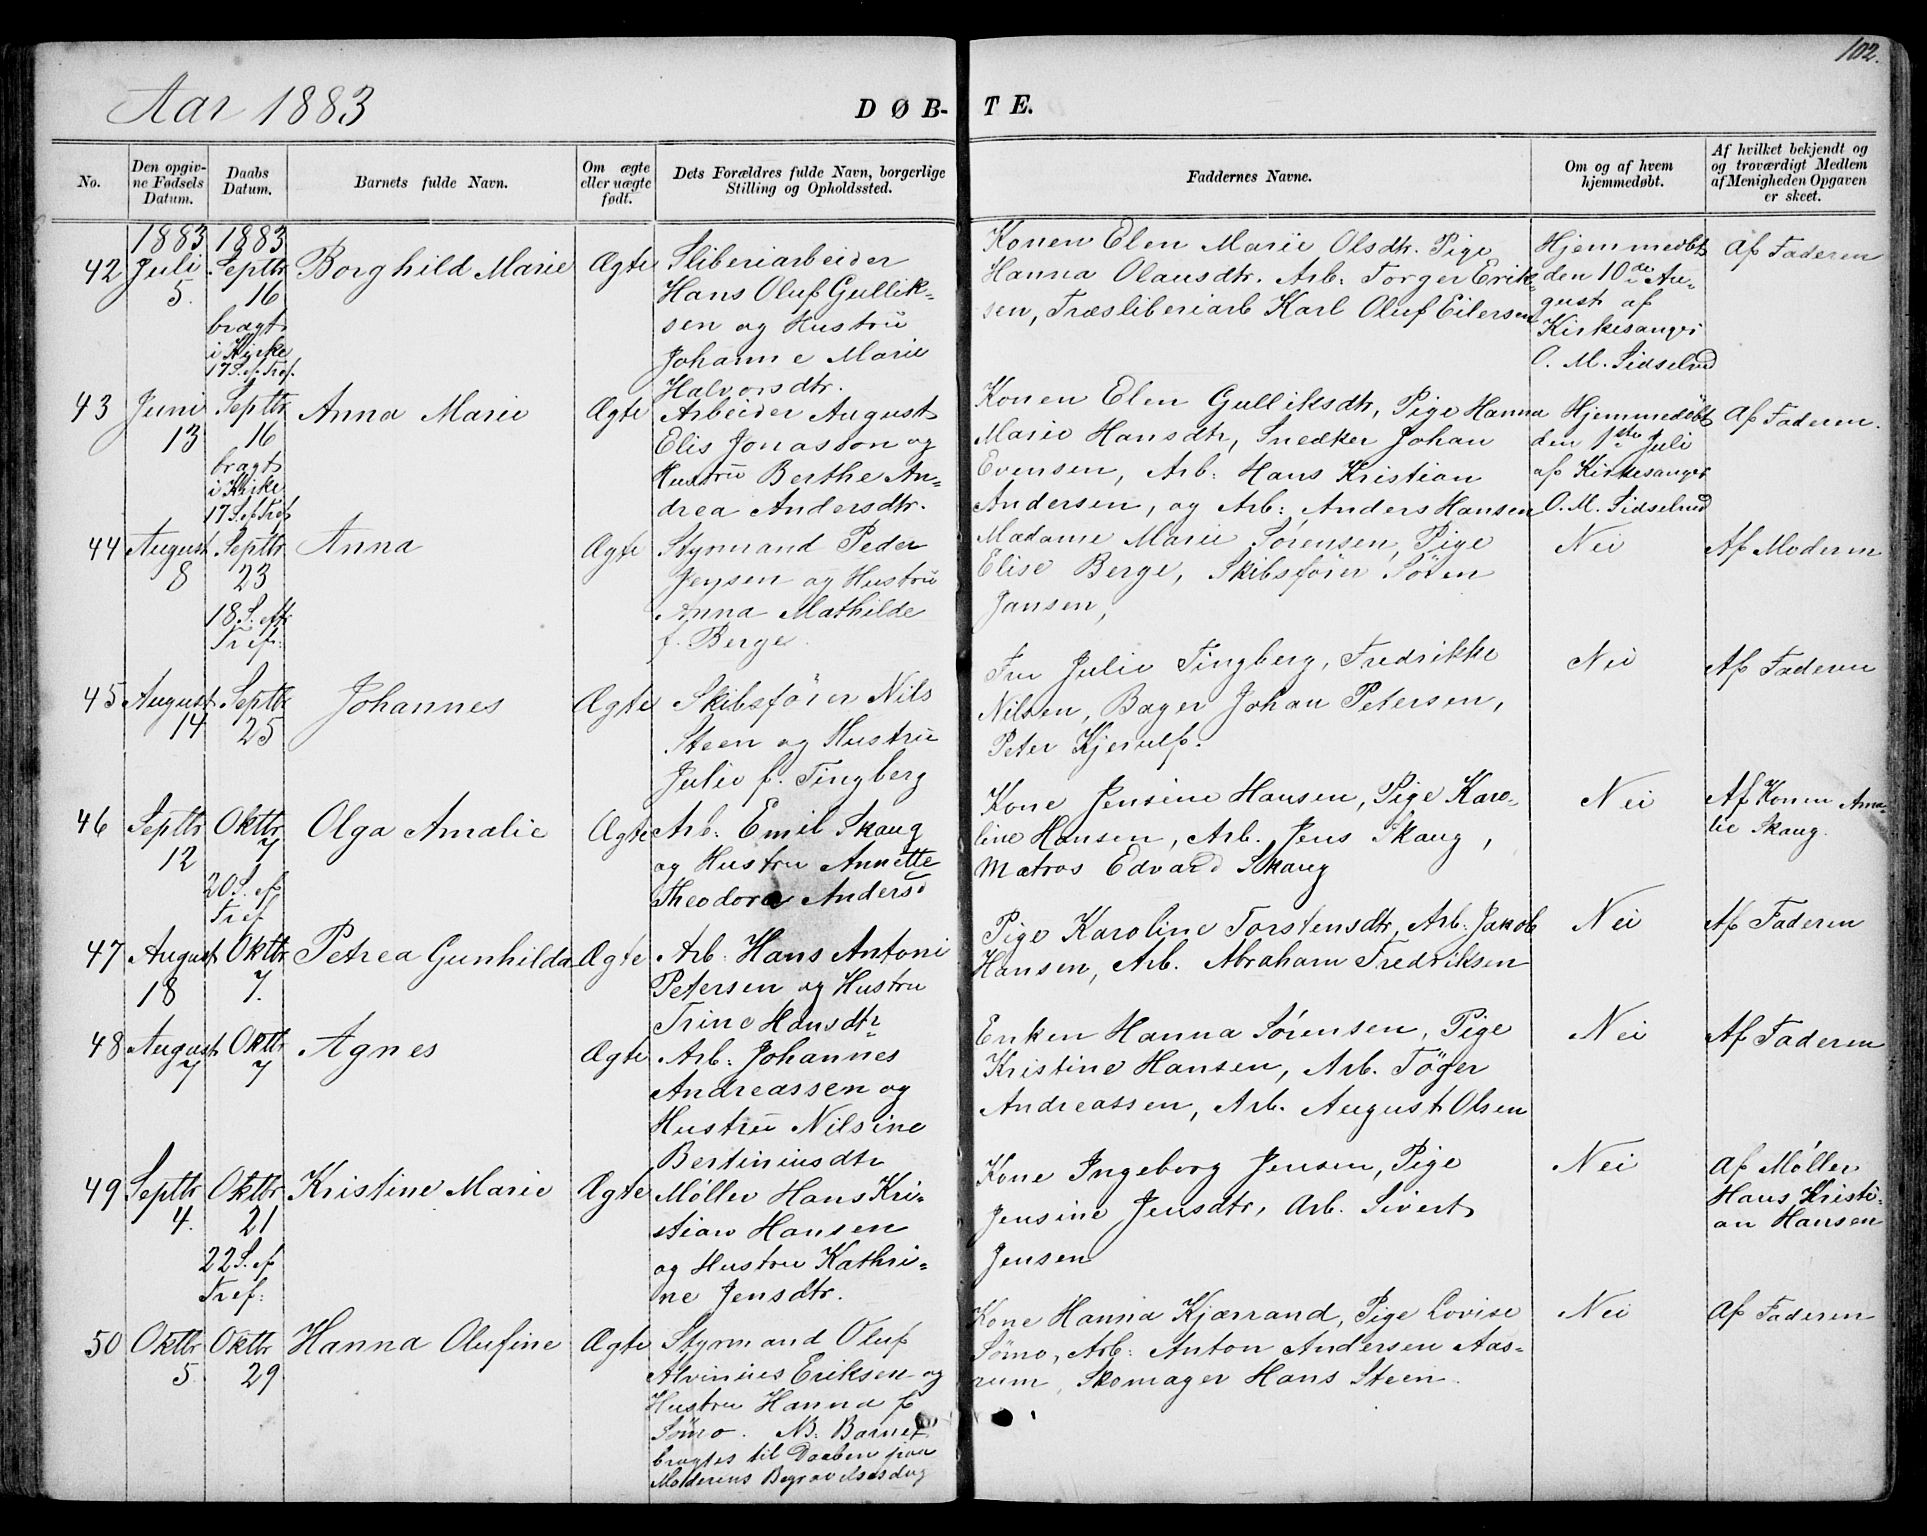 102.
Aar 1883
DØB-TE.
No.
Den opgiv-
ne Fødsels
Datum.
Daabs
Datum.
Barnets fulde Navn.
Om ægte
eller uægte
født.
Dets Forældres fulde Navn, borgerlige
Stilling og Opholdssted.
Faddernes Navne.
Om og af hvem
hjemmedøbt.
Af hvilket bekjendt og
og troværdigt Medlem
af Menigheden Opgaven
er skeet.
42
1883
Juli
5.
1883
Septbr
16
bragt
i Kirke
17 S. ef. Tref.
Borghild Marie
Ægte
Sliberiarbeider
Hans Oluf Gullik-
sen og Hustru
Johanne Marie
Halvorsdtr.
Konen Elen Marie Olsdtr. Pige
Hanna Olausdtr. Arb: Torger Erik-
sen, Træsliberiarb Karl Oluf Eilersen
Hjemmedøbt
den 10de Au-
gust af
Kirkesanger
O. M. Sidselrud
Af Faderen
43
Juni
13
Septbr
16
bragt
i Kirke
17 S. ef Tref
Anna Marie
Ægte
Arbeider August
Elis Jonasson og
Hustru Berthe An-
drea Andersdtr.
Konen Elen Gulliksdtr, Pige Hanna
Marie Hansdtr, Snedker Johan
Evensen, Arb: Hans Kristian
Andersen, og Arb: Anders Hansen
Hjemmedøbt
den 1ste Juli
af Kirkesanger
O. M. Sidselrud
Af Faderen.
44
August
8
Septbr
23
18 S. eft.
Tref:
Anna
Ægte
Styrmand Peder
Jensen og Hustru
Anna Mathilde
f. Berge.
Madame Marie Sørensen, Pige
Elise Berge, Skibsfører Søren
Jansen,
Nei
Af Moderen
45
August
14
Septbr
25
Johannes
Ægte
Skibsfører Nils
Steen og Hustru
Julie f. Tingberg
Fru Julie Tingberg, Fredrikke
Nilsen, Bager Johan Petersen,
Peter Kjerulf.
Nei
Af Faderen
46
Septbr
12
Oktbr
7
20 S. ef
Tref
Olga Amalie
Ægte
Arb: Emil Skaug
og Hustru Annette
Theodora Andersd
Kone Jensine Hansen, Pige Karo-
line Hansen, Arb. Jens Skaug,
Matros Edvard Skaug
Nei
Af Konen Ama-
lie Skaug.
47
August
18
Oktbr
7.
Petrea Gunhilda
Ægte
Arb. Hans Antoni
Petersen og Hustru
Trine Hansdtr
Pige Karoline Torstensdtr, Arb. Jakob
Hansen, Arb. Abraham Fredriksen
Nei
Af Faderen
48
August
7
Oktbr
7
Agnes
Ægte
Arb: Johannes
Andreassen og
Hustru Nilsine
Bertiniusdtr
Enken Hanna Sørensen, Pige
Kristine Hansen, Arb. Tøger
Andreassen, Arb. August Olsen
Nei
Af Faderen
49
Septbr
4.
Oktbr
21
22 S. ef
Tref:
Kristine Marie
Ægte
Møller Hans Kri-
stian Hansen
og Hustru Kathri-
ne Jensdtr.
Kone Ingeborg Jensen, Pige
Jensine Jensdtr, Arb. Sivert
Jensen
Nei
Af Møller
Hans Kristi-
an Hansen
50
Oktbr
5
Oktbr
29
Hanna Olufine
Ægte
Styrmand Oluf
Alvinius Eriksen og
Hustru Hanna f
Sømo. NB: Barnet
bragtes til Daaben paa
Moderens Begravelsesdag
Kone Hanna Kjærrand, Pige Lovise
Sømo, Arb: Anton Andersen Aas-
rum, Skomager Hans Steen.
Nei
Af Faderen